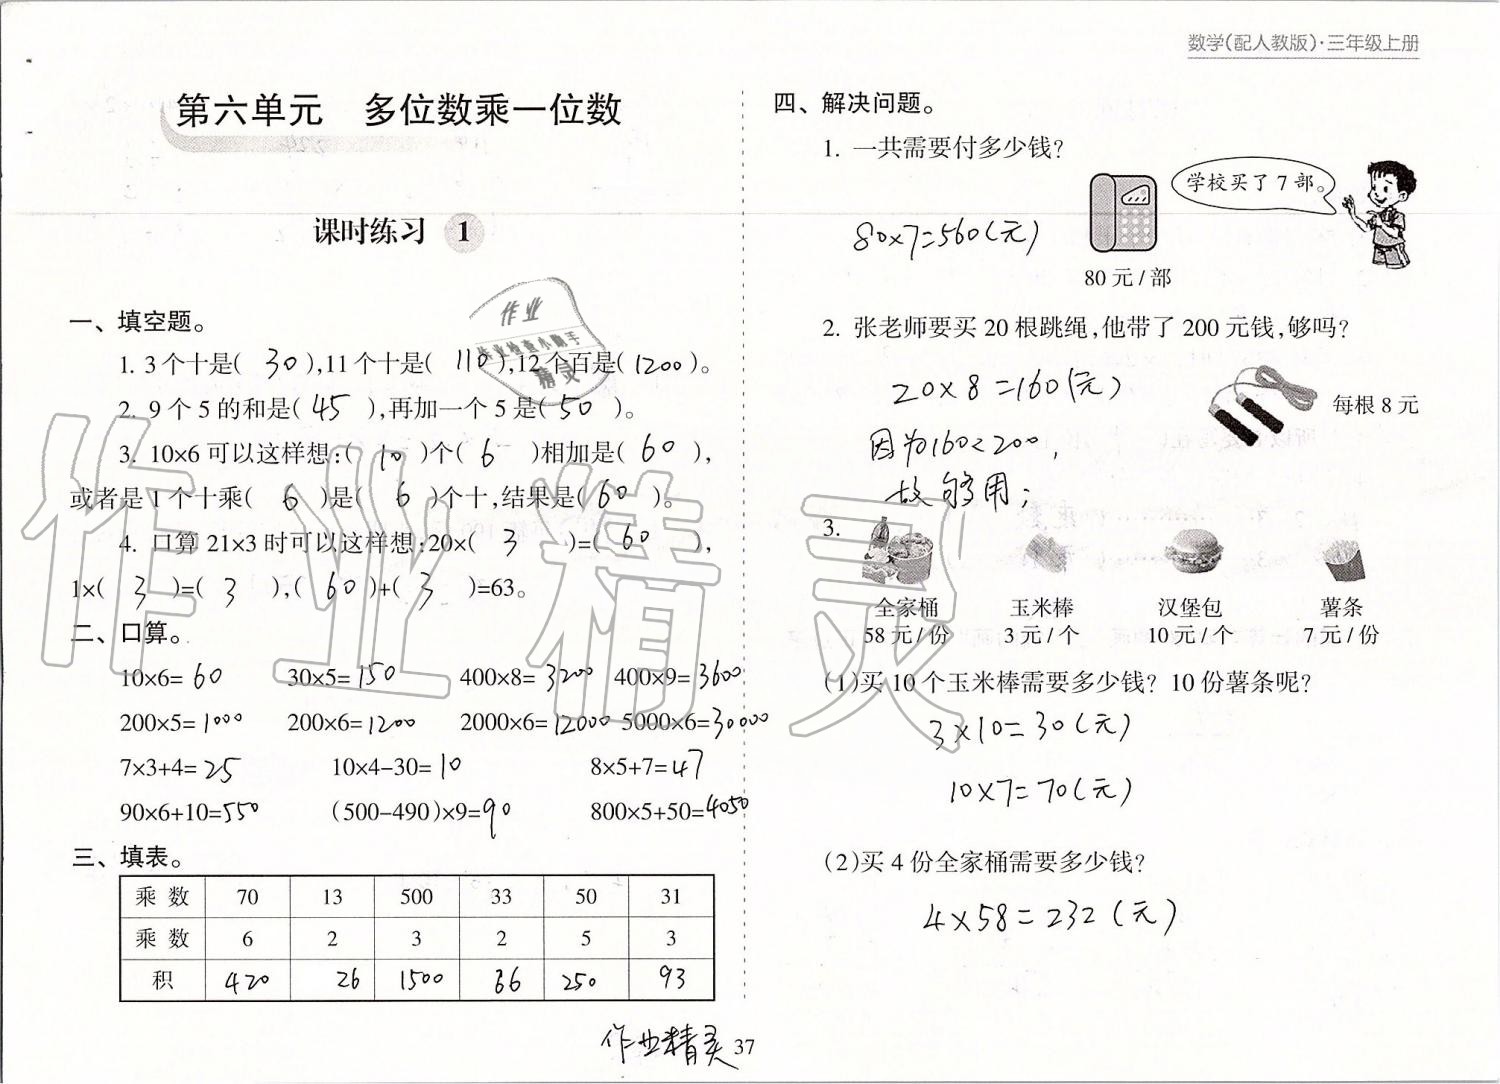 数学(配人教版)·三年级上册
第六单元 多位数乘一位数
课时练习 1
作业
作业检查小助手
精灵
一、填空题。
1. 3个十是( 30 ),11个十是( 110 ),12个百是( 1200 )。
2. 9个5的和是( 45 ),再加一个5是( 50 )。
3. 10×6可以这样想:( 10 )个( 6 )相加是( 60 ),
或者是1个十乘( 6 )是( 6 )个十,结果是( 60 )。
4. 口算21×3时可以这样想:20×( 3 )=( 60 ),
1×( 3 )=( 3 ),( 60 )+( 3 )=63。
二、口算。
10×6=60 30×5=150 400×8=3200 400×9=3600
200×5=1000 200×6=1200 2000×6=12000 5000×6=30000
7×3+4=25 10×4-30=10 8×5+7=47
90×6+10=550 (500-490)×9=90 800×5+50=4050
三、填表。
乘数 70 13 500 33 50 31
乘数 6 2 3 2 5 3
积 420 26 1500 66 250 93
四、解决问题。
1. 一共需要付多少钱?
学校买了7部。
80×7=560(元)
80元/部
2. 张老师要买20根跳绳,他带了200元钱,够吗?
20×8=160(元)
每根8元
因为160<200,
故够用;
3.
全家桶 玉米棒 汉堡包 薯条
58元/份 3元/个 10元/个 7元/份
(1)买10个玉米棒需要多少钱? 10份薯条呢?
3×10=30(元)
10×7=70(元)
(2)买4份全家桶需要多少钱?
4×58=232(元)
作业精灵
37
作业精灵